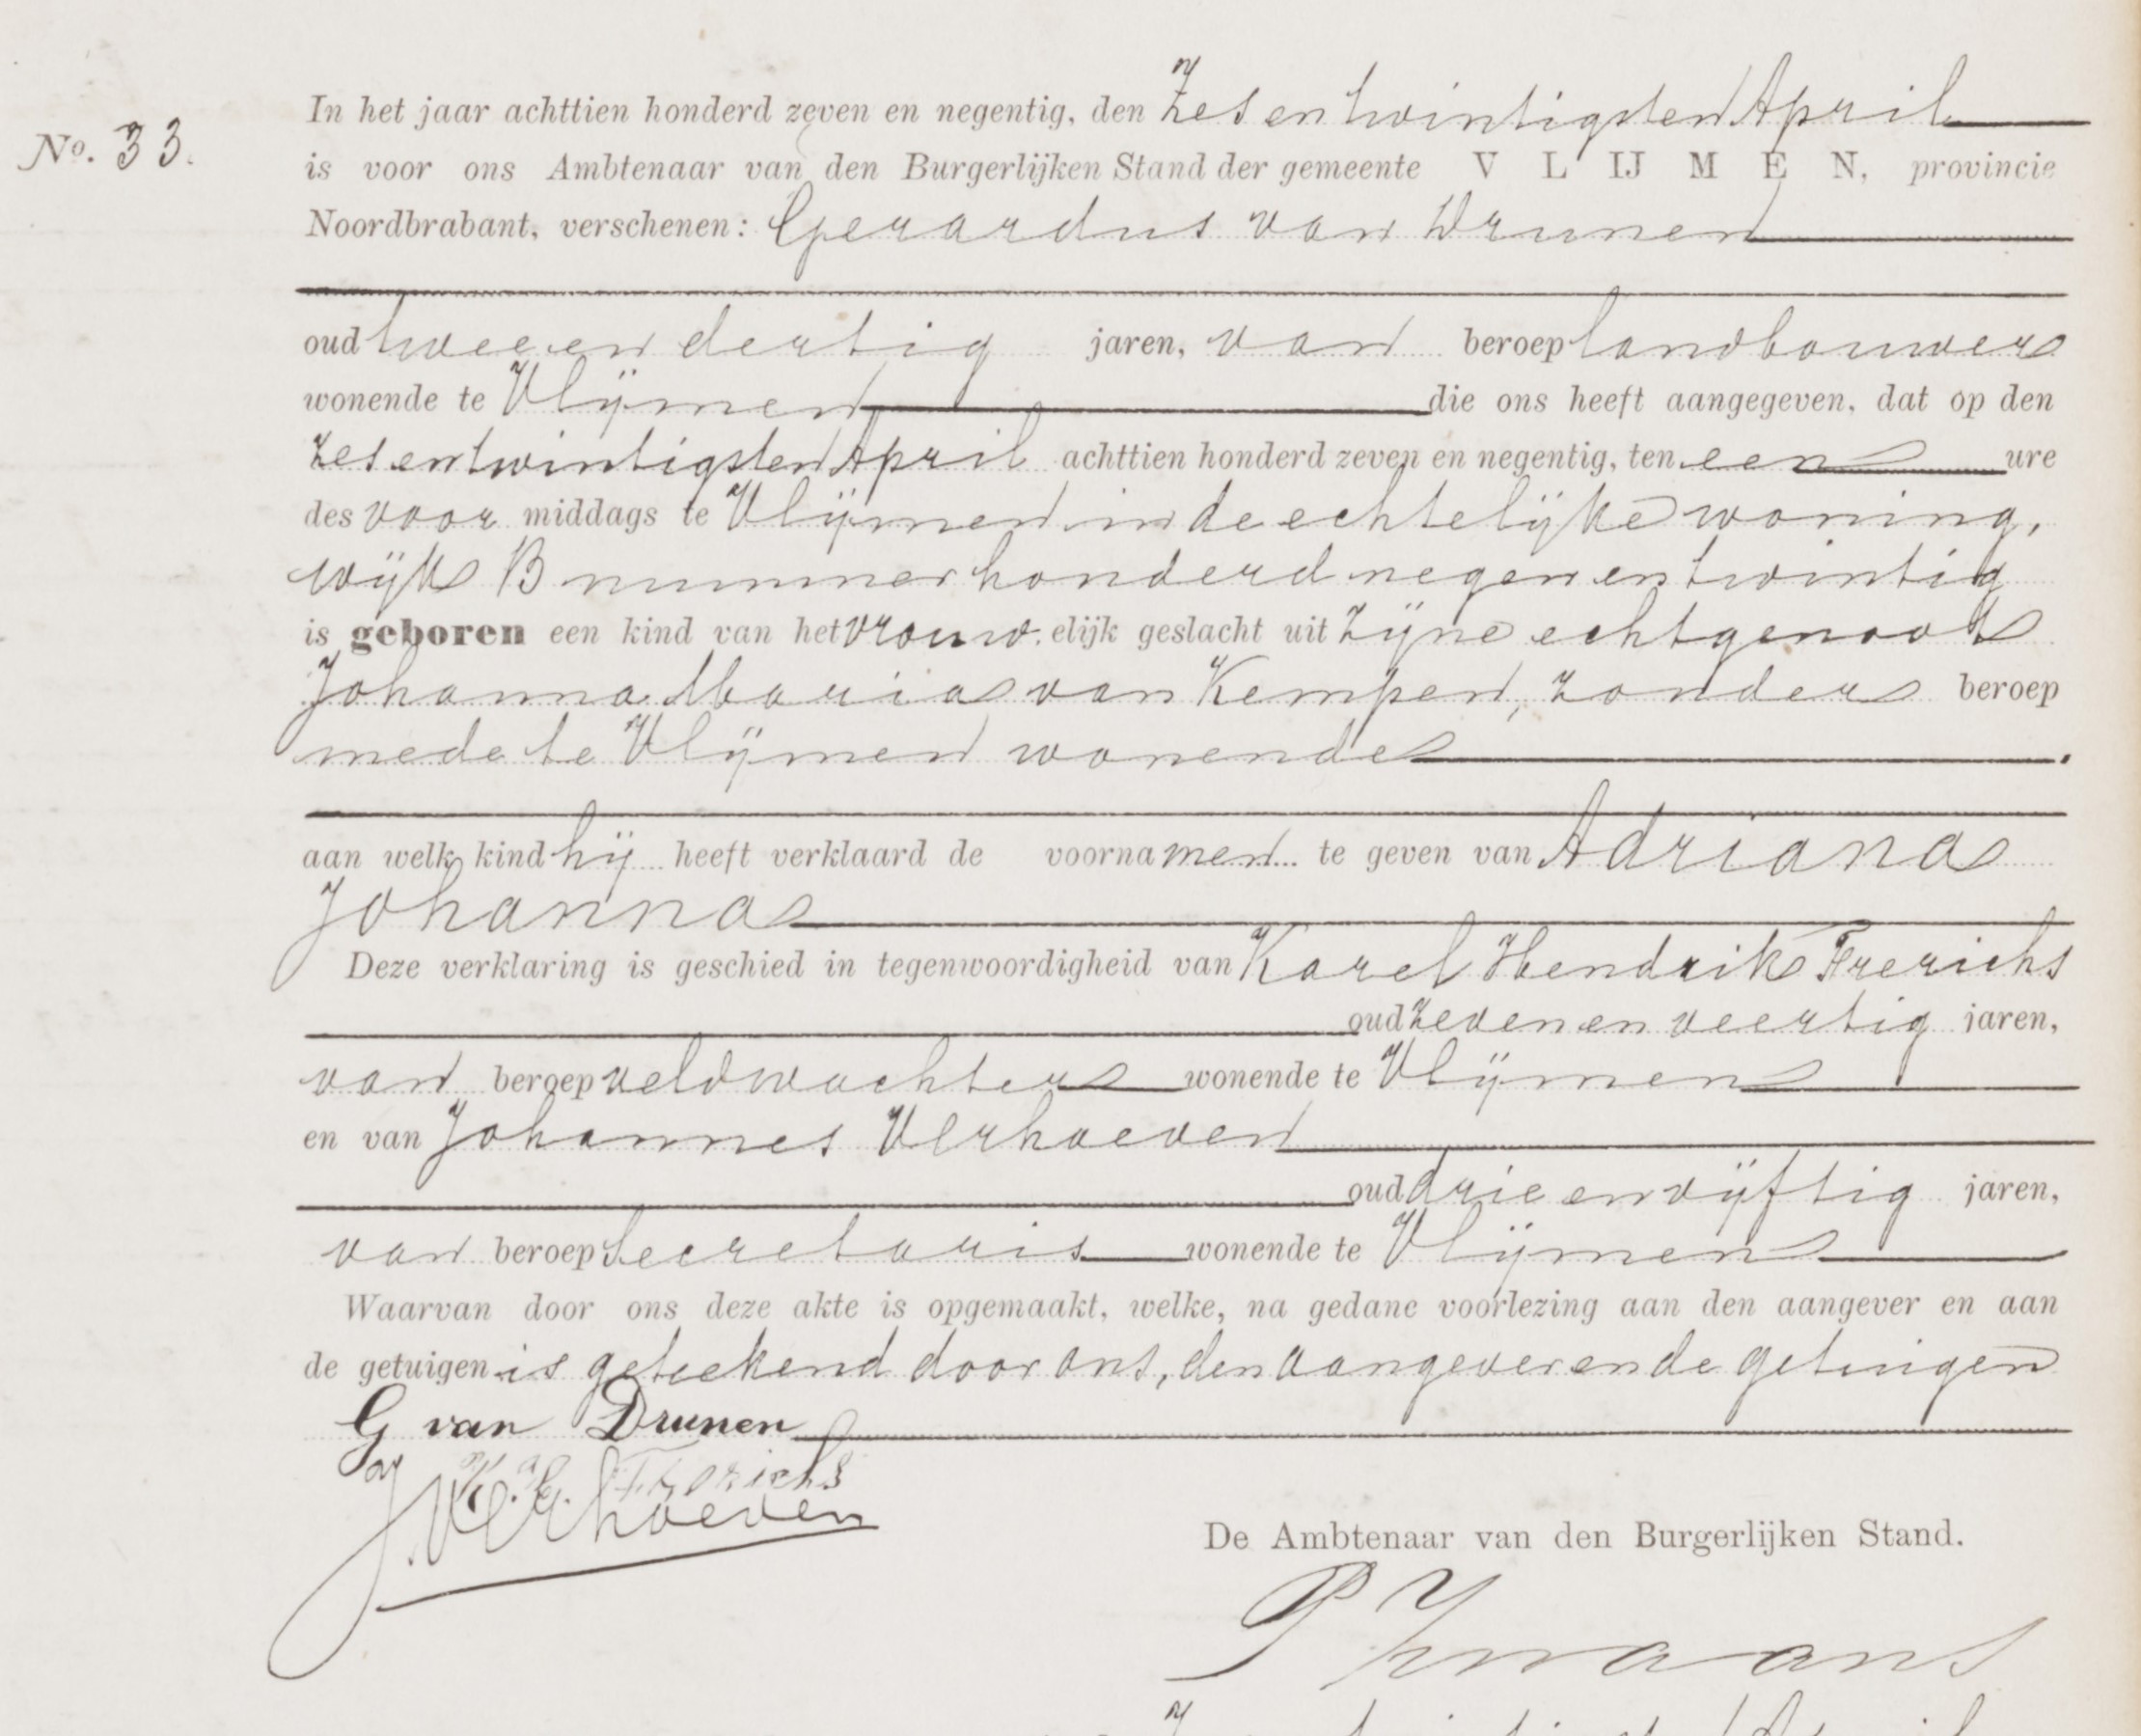 No. 33.
In het jaar achttien honderd zeven en negentig, den zesentwintigsten April
is voor ons Ambtenaar van den Burgerlijken Stand der gemeente VLIJMEN, provincie
Noordbrabant, verschenen: Gerardus van Drunen
oud tweeendertig jaren, van beroep landbouwer
wonende te Vlijmen die ons heeft aangegeven, dat op den
zesentwintigsten April achttien honderd zeven en negentig, ten een ure
des voor middags te Vlijmen in de echtelijke woning,
wijk B nummer honderd negenentwintig
is geboren een kind van het vrouwelijk geslacht uit zijne echtgenoot
Johanna Maria van Kempen, zonder beroep
mede te Vlijmen wonende.
aan welk kind hij heeft verklaard de voornamen te geven van Adriana
Johanna
Deze verklaring is geschied in tegenwoordigheid van Karel Hendrik Frerichs
oud zevenenveertig jaren,
van beroep veldwachter wonende te Vlijmen
en van Johannes Verhoeven
oud drieenvijftig jaren,
van beroep secretaris wonende te Vlijmen
Waarvan door ons deze akte is opgemaakt, welke, na gedane voorlezing aan den aangever en aan
de getuigen is geteekend door ons, den aangever en de getuigen
G van Drunen
Frerichs
J. Verhoeven
De Ambtenaar van den Burgerlijken Stand.